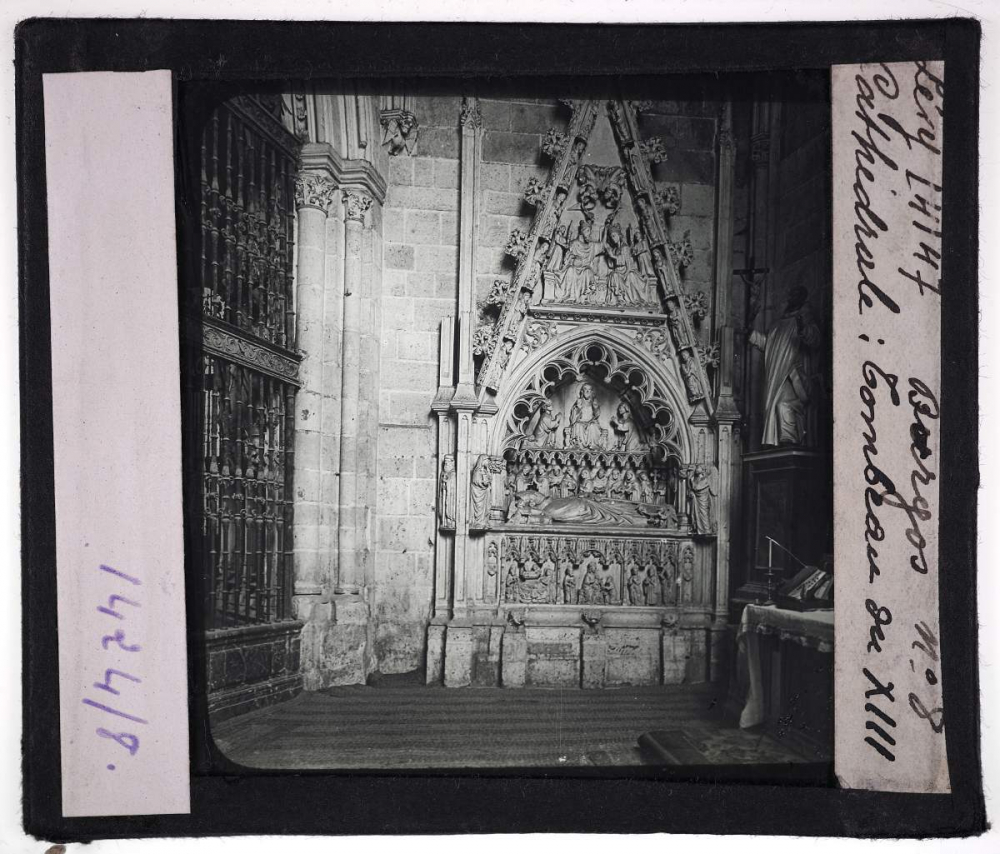 Lévy [14]147 Bourgos N°: 8
Cathédrale : Tombeau du XIII
1424/8.